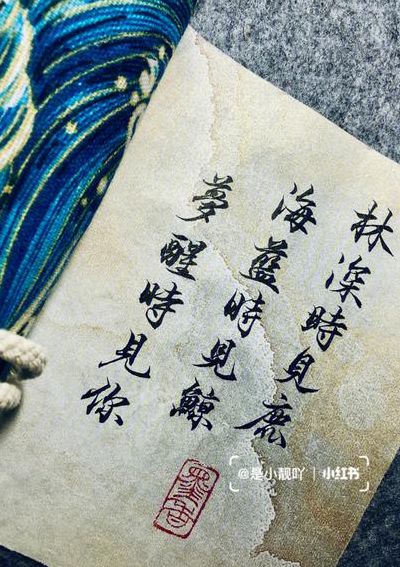 林深時見鹿
海藍時見鯨
夢醒時見你
@是小靓吖 | 小红书